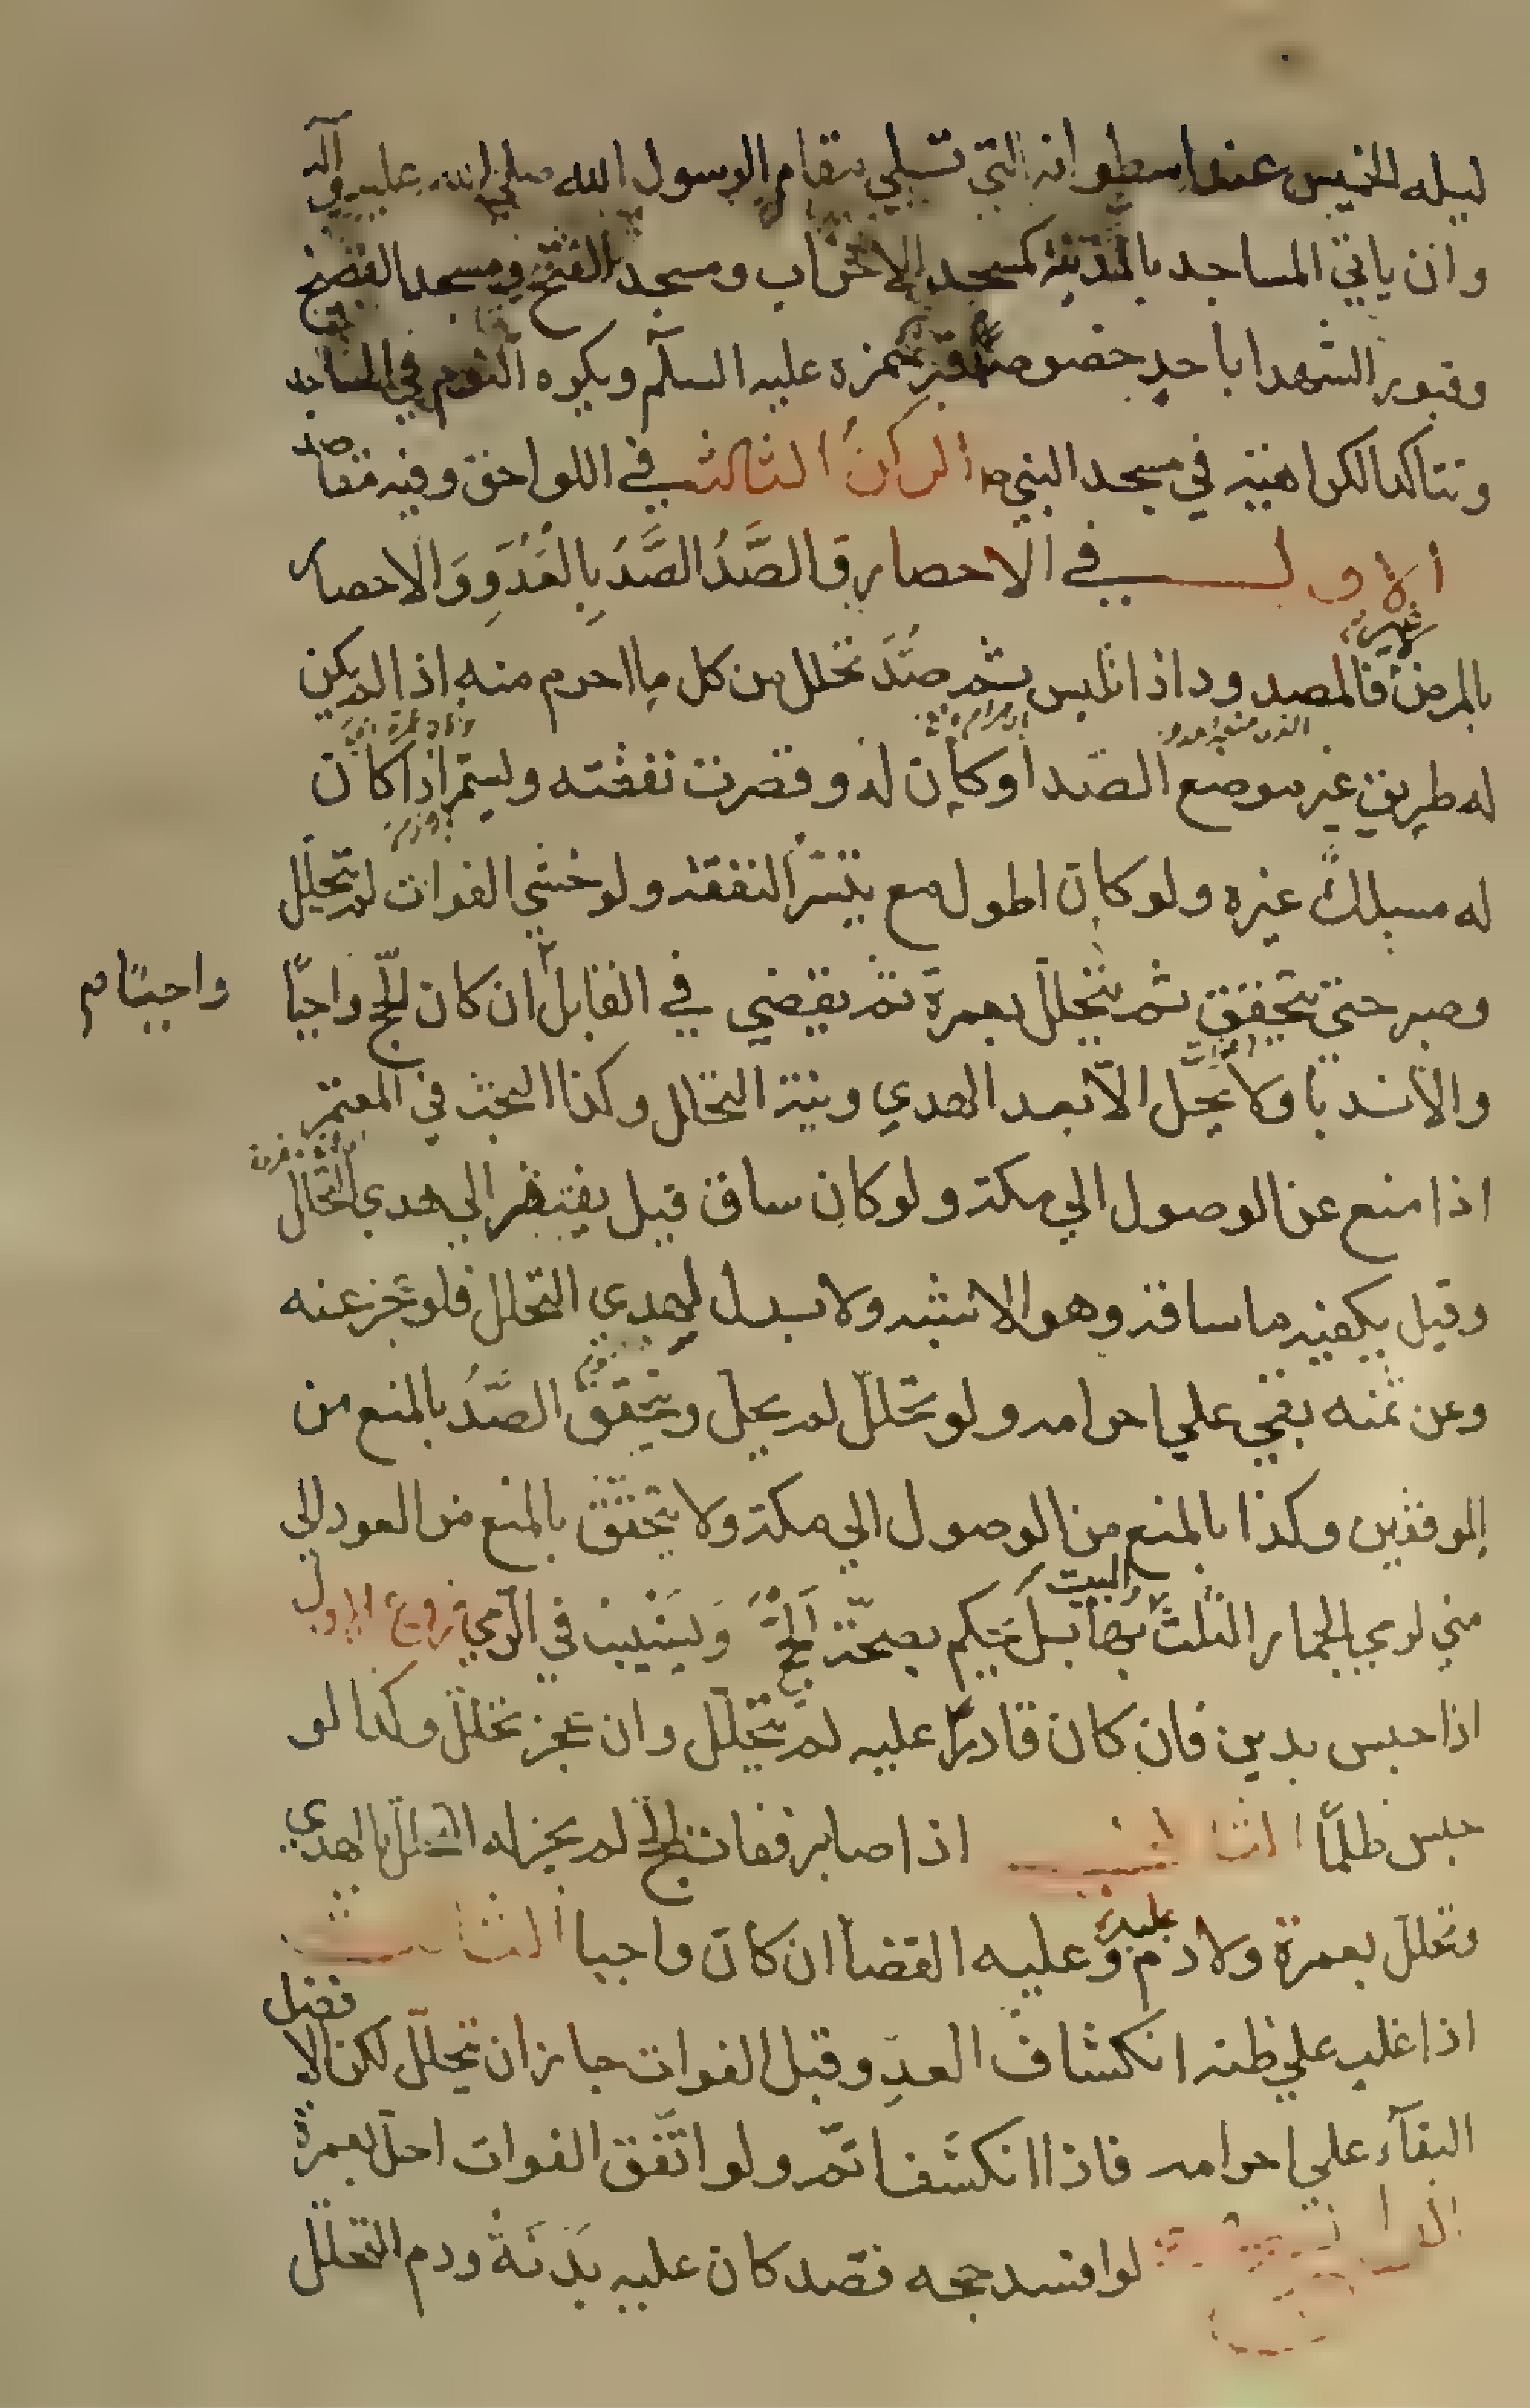 ليله الخميس عند اسطوانه التي تلي مقام الرسول الله صلى الله عليه وآله
وان ياتي المساجد بالمدينة كمسجد الاحزاب ومسجد الفتح ومسجد الفضيخ
وقبور الشهدا باحد خصوصا قبر حمزه عليه السلم ويكره النوم في المساجد
وتتاكد الكراهية في مسجد النبي ص الركن الثالث في اللواحق وفيه مقاصد
الاول في الاحصار والصَّدُّ الصَّدُّ بالعَدُوِّ وَالاحصار
بالمرض فالمصدود اذا تلبس ثم صُدَّ تحلل من كل ما احرم منه اذا لم يكن
له طريق غير موضع الصد او كان له وقصرت نفقته ويستمر اذا كان
له مسلك غيره ولو كان اطول مع تيسر النفقة ولو خشي الفوات لم يتحلل
وصبر حتى يتحقق ثم يتحلل بعمرة ثم يقضي في القابل ان كان الحج واجبًا
واجبًا م
والا ندبا ولا يحل الا بعد الهدي ونية التحلل وكذا البحث في المعتمر
اذا منع عن الوصول الي مكة ولو كان ساق قيل يفتقر الي هدي التحلل
وقيل يكفيه ما ساقه وهو الاشبه ولا بدل لهدي التحلل فلو عجز عنه
وعن ثمنه بقي علي احرامه ولو تحلل لم يحل ويتحقق الصَّدُّ بالمنع من
الموقفين وكذا بالمنع من الوصول الي مكة ولا يتحقق بالمنع من العود الي
مني لرمي الجمار الثلث بها بل يحكم بصحة الحج وَيستنيب في الرمي فروع الاول
البيت
اذا حبس بدين فان كان قادرًا عليه لم يتحلل وان عجز تحلل وكذا لو
حبس ظلمًا الثاني اذا صابر ففات الحج لم يجز له التحلل بالهدي
وتحلل بعمرة ولا دم عليه وعليه القضا ان كان واجبا الثالث
اذا غلب علي ظنه انكشاف العدو قبل الفوات جاز ان يتحلل لكن الافضل
البقآء علي احرامه فاذا انكشف اتم ولو اتفق الفوات احل بعمرة
الرابع لو افسد حجه فصد كان عليه بدنة ودم التحلل